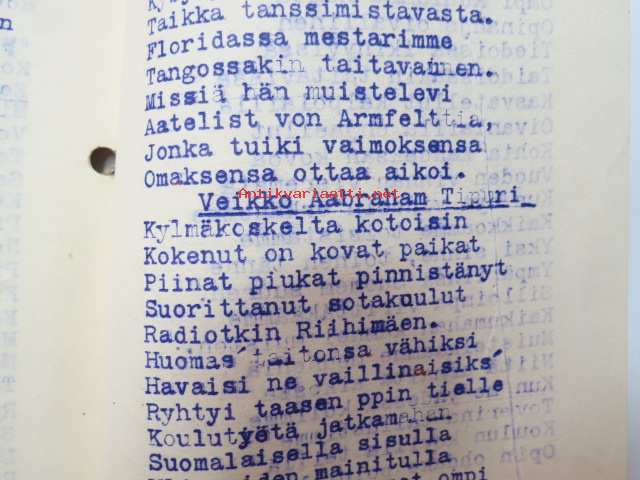 Taikka tanssimistavasta.
Floridassa mestarimme
Tangossakin taitavainen.
Missiä hän muistelevi
Aatelist von Armfelttia,
Jonka tuiki vaimoksensa
Omaksensa ottaa aikoi.
Antikvariaatti.net
Veikko Aabraham Tipuri.
Kylmäkoskelta kotoisin
Kokenut on kovat paikat
Piinat piukat pinnistänyt
Suorittanut sotakuulut
Radiotkin Riihimäen.
Huomas´ taitonsa vähiksi
Havaisi ne vaillinaisiks´
Ryhtyi taasen ppin tielle
Koulutyötä jatkamahan
Suomalaisella sisulla
mainitulla
ompi